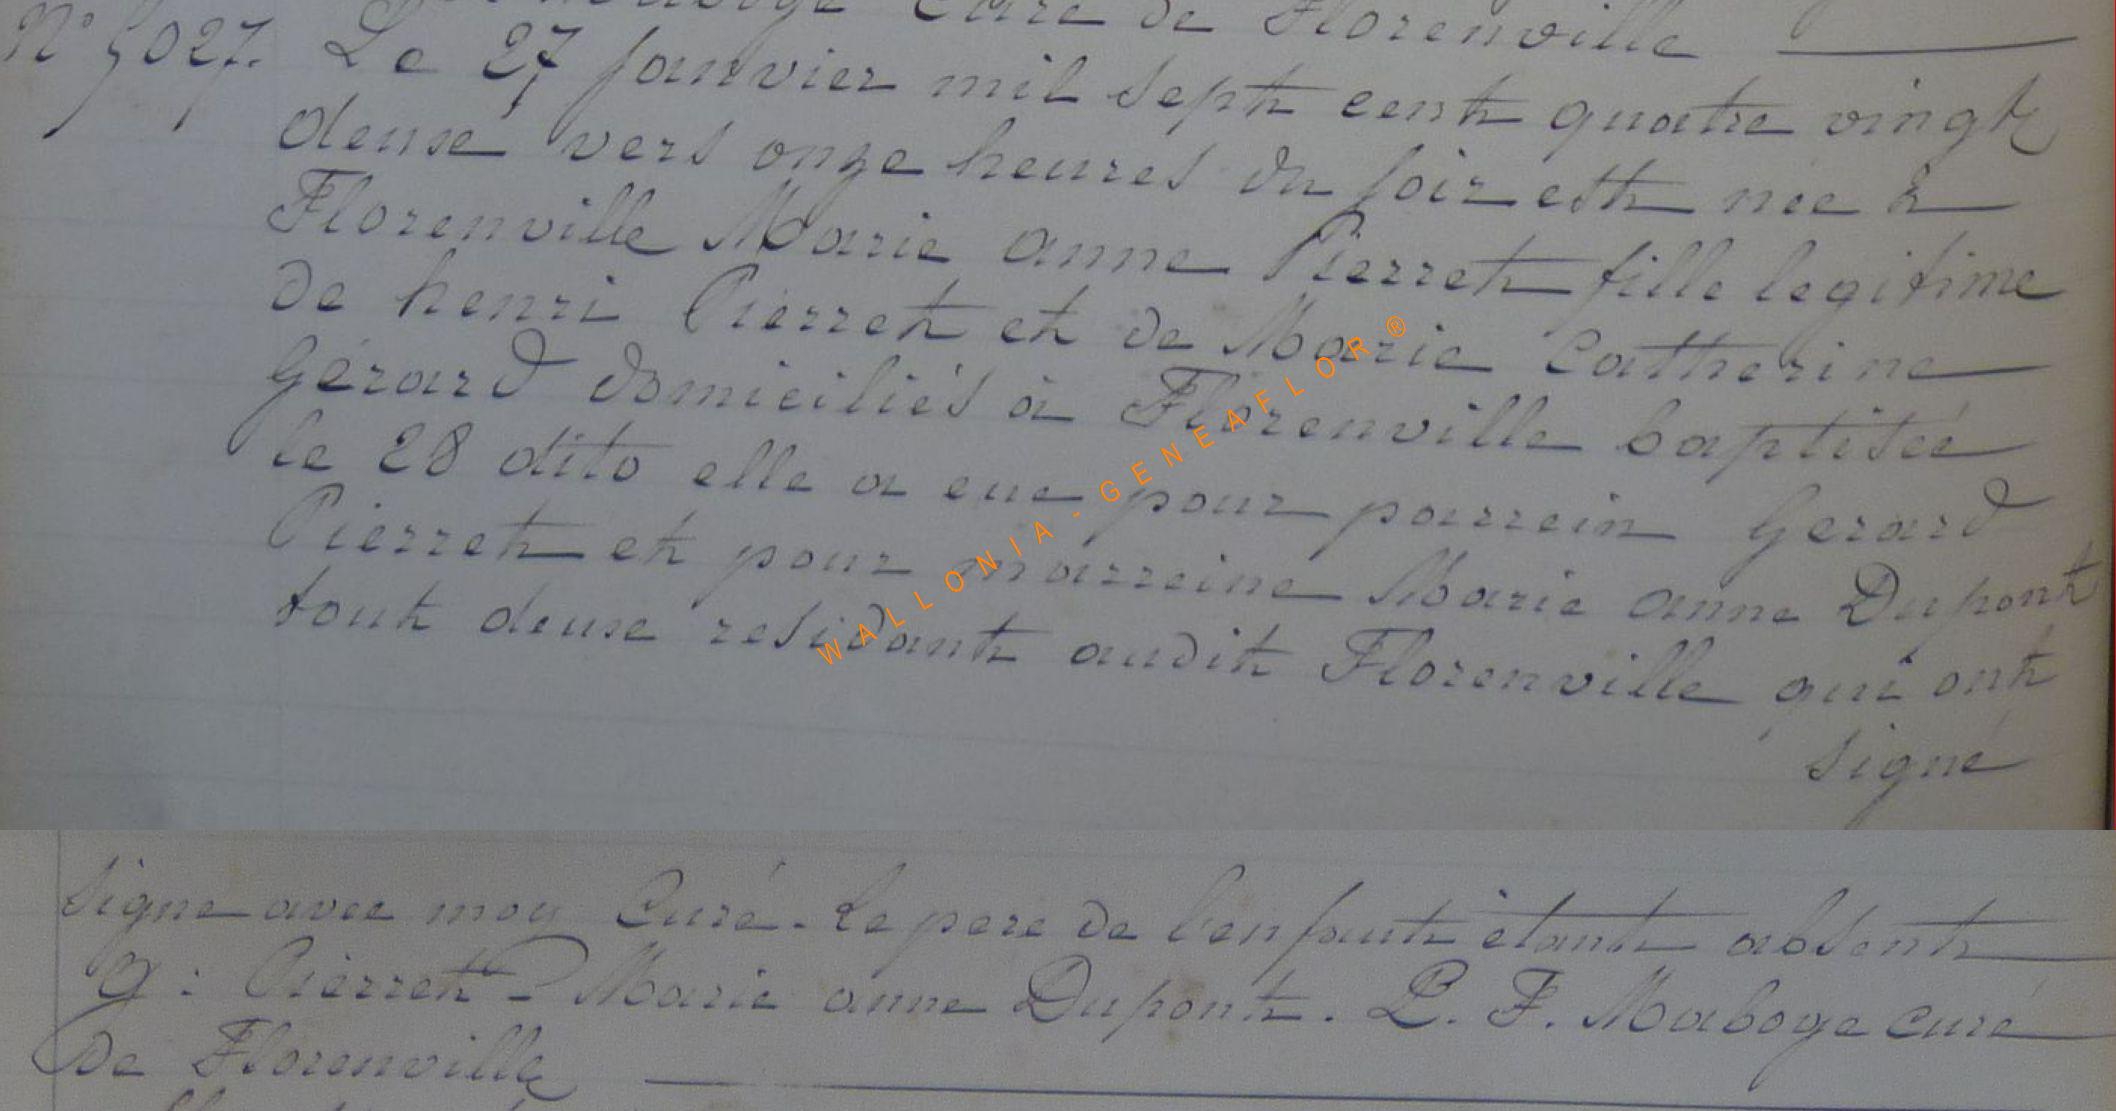 Curé de Florenville
N° 5027. Le 27 janvier mil sept cent quatre vingt
deuse vers onze heures du soir est née à
Florenville Marie anne Pierret fille legitime
de henri Pierret et de Marie Catherine
Gérard domiciliés à Florenville baptisée
le 28 dito elle a eue pour parrein Gerard
Pierret et pour marreine Marie anne Dupont
tout deuse residant audit Florenville qui ont
signé
WALLONIA - GENEAFLOR ®
signe avec moy Curé. Le pere de l'enfant étant absent
g : Pierret - Marie anne Dupont. L. F. Maboge curé
de Florenville